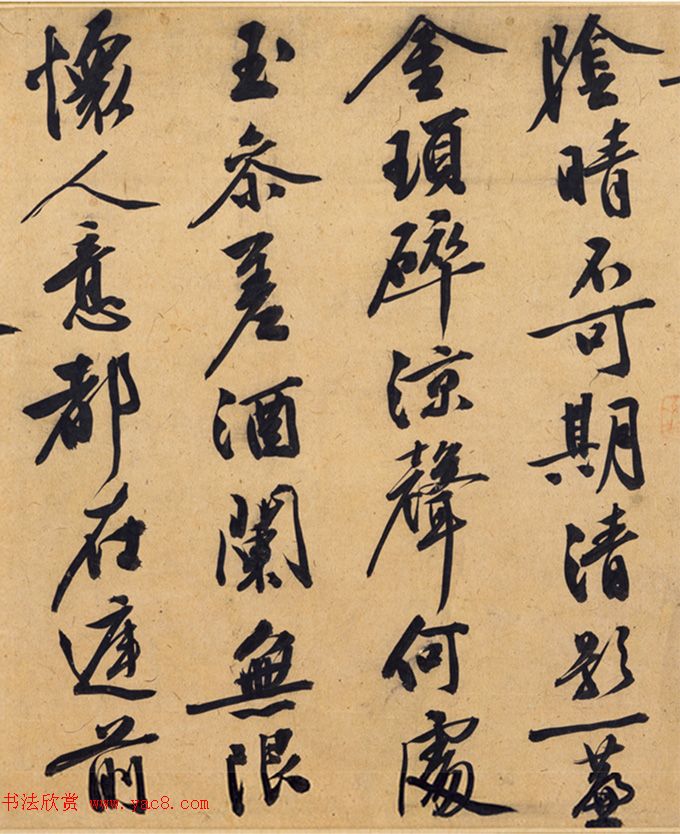 陰晴不可期清影一簾
金瑣碎涼聲何處
玉參差酒闌無限
懷人意都在庭前
书法欣赏 www.yac8.com